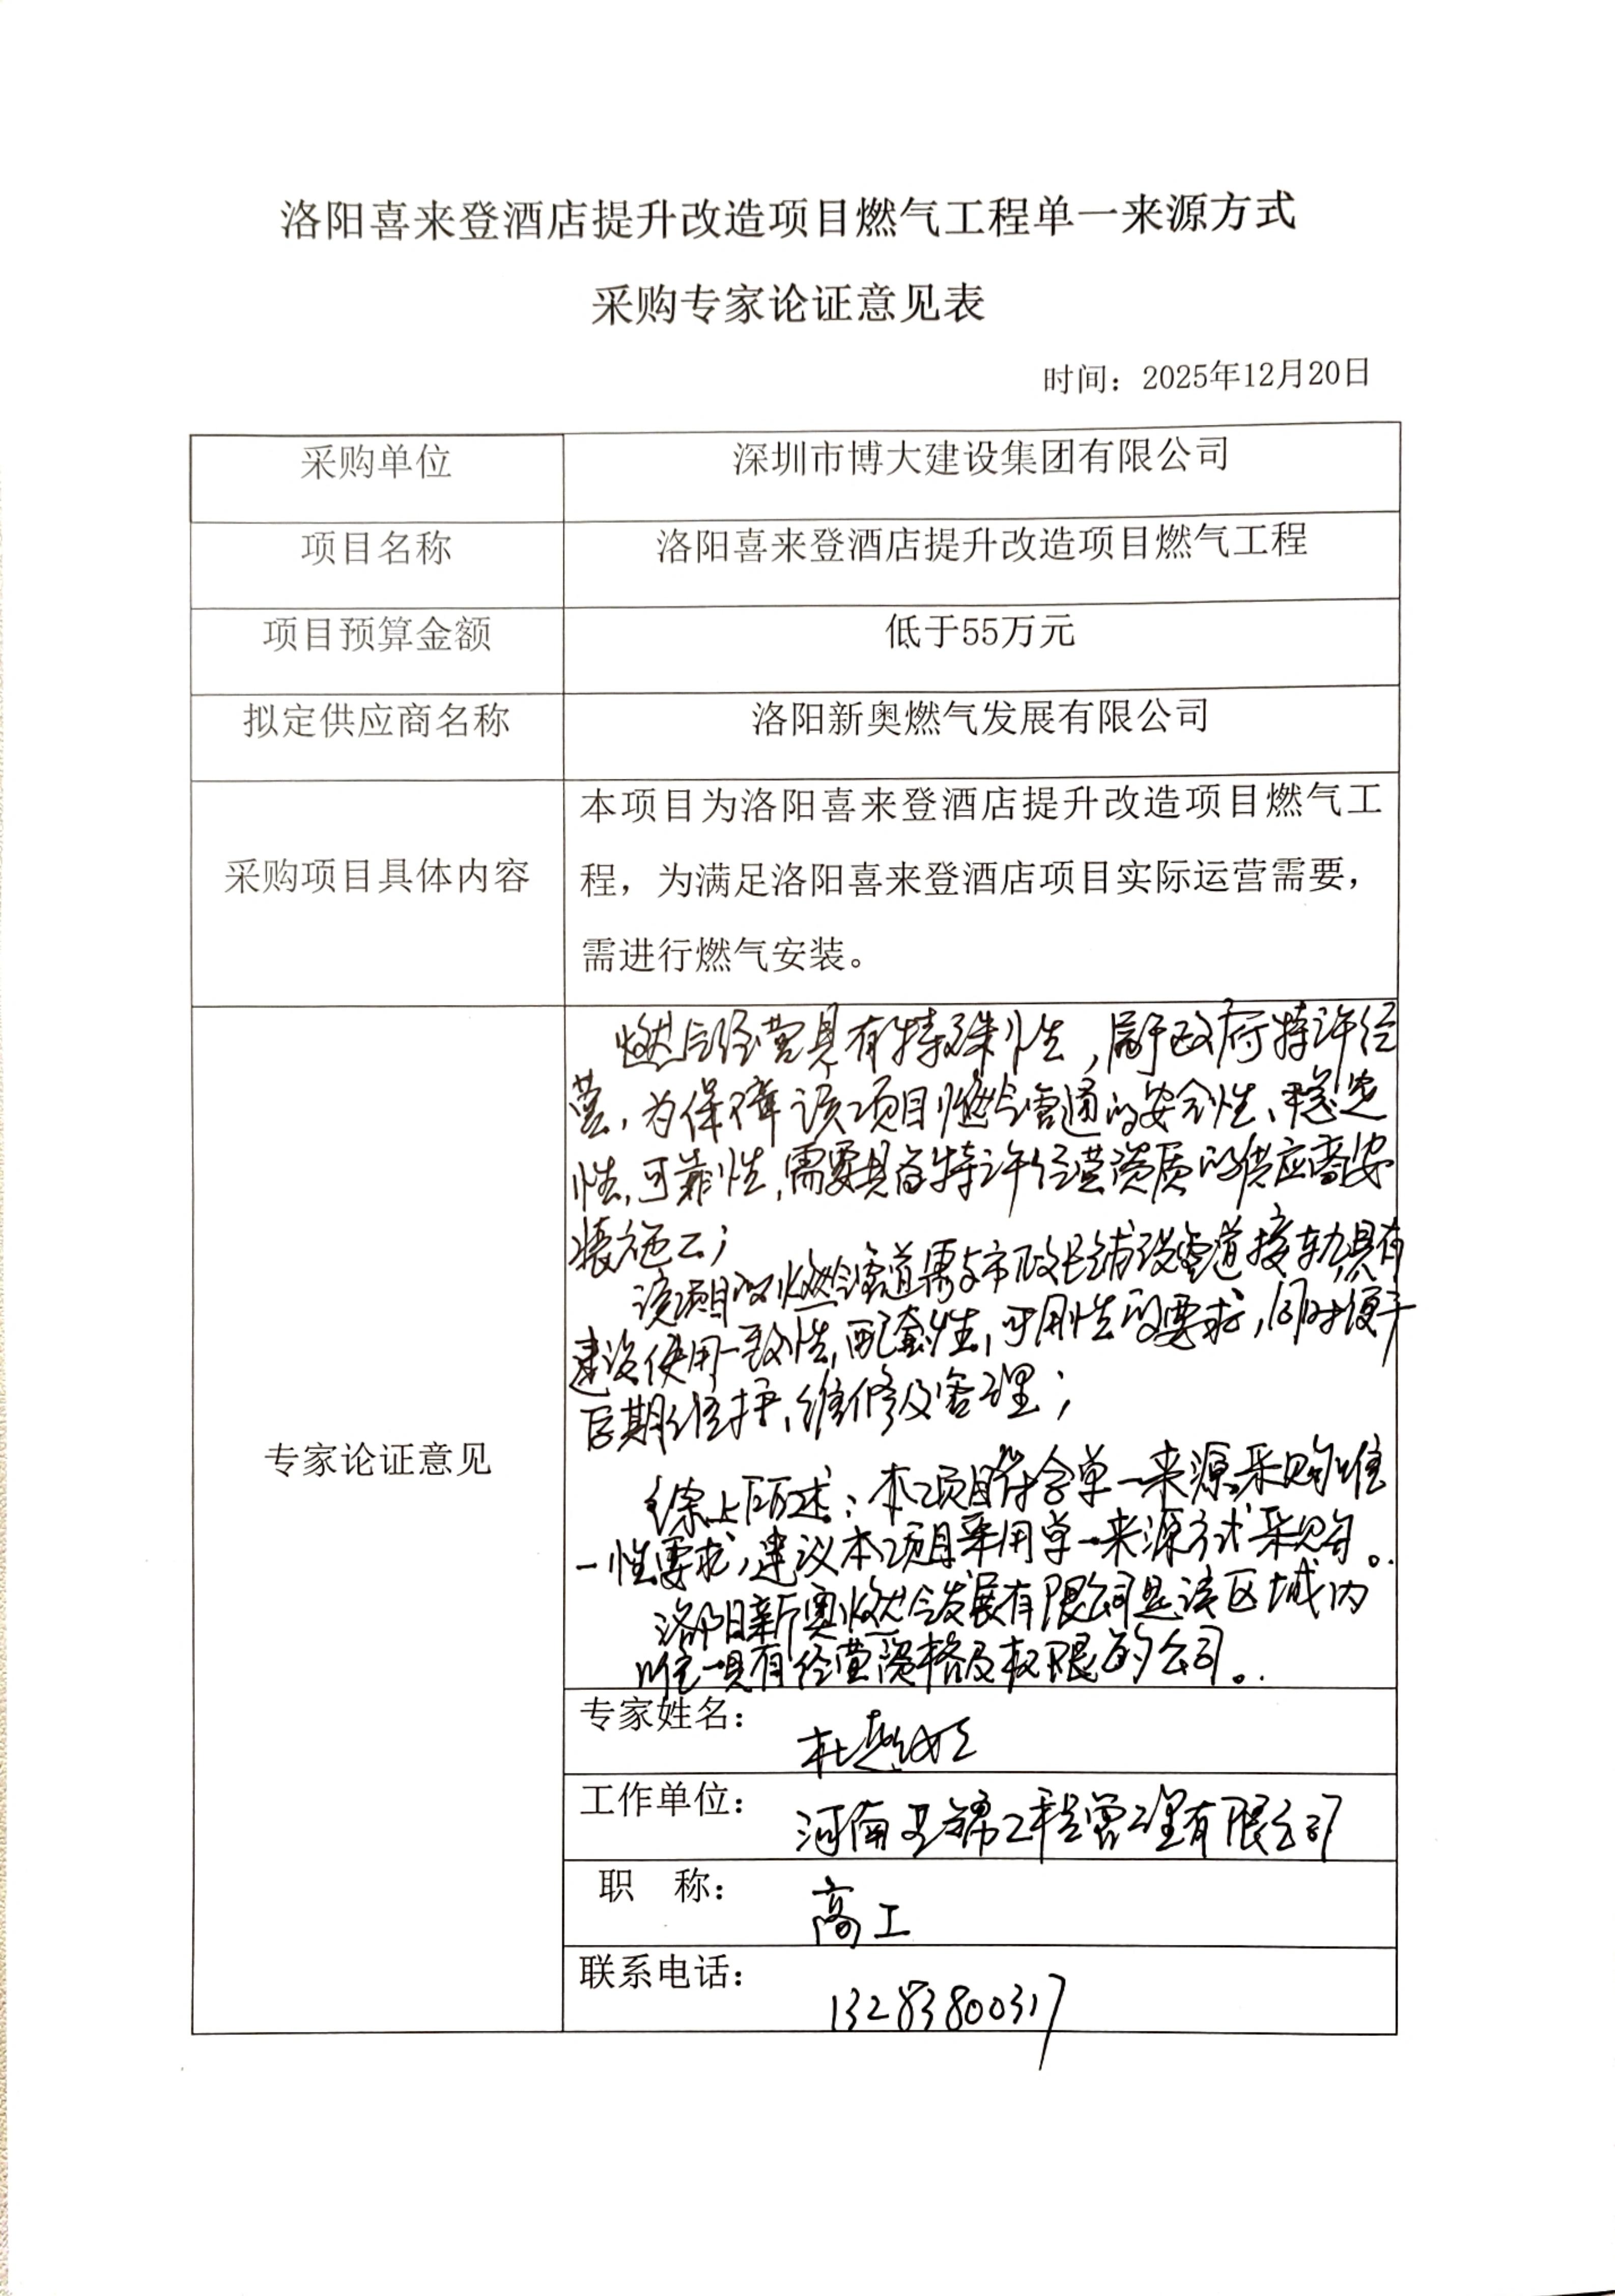 洛阳喜来登酒店提升改造项目燃气工程单一来源方式
采购专家论证意见表
时间：2025年12月20日
采购单位
深圳市博大建设集团有限公司
项目名称
洛阳喜来登酒店提升改造项目燃气工程
项目预算金额
低于55万元
拟定供应商名称
洛阳新奥燃气发展有限公司
采购项目具体内容
本项目为洛阳喜来登酒店提升改造项目燃气工
程，为满足洛阳喜来登酒店项目实际运营需要，
需进行燃气安装。
专家论证意见
燃气经营具有特殊性，属于政府特许经
营，为保障该项目燃气管道的安全性、稳定
性，可靠性，需要具备特许经营资质的供应商安
装施工；
该项目的燃气管道需与市政已铺设管道接轨，具有
建设使用一致性，配套性，可用性的要求，同时便于
后期维护、维修及管理；
综上所述：本项目符合单一来源采购唯
一性要求，建议本项目采用单一来源方式采购。
洛阳新奥燃气发展有限公司是该区域内
唯一具有经营资格及权限的公司。
专家姓名：
杜
工作单位：
河南 锦工程管理有限公司
职 称：
高工
联系电话：
13283800317